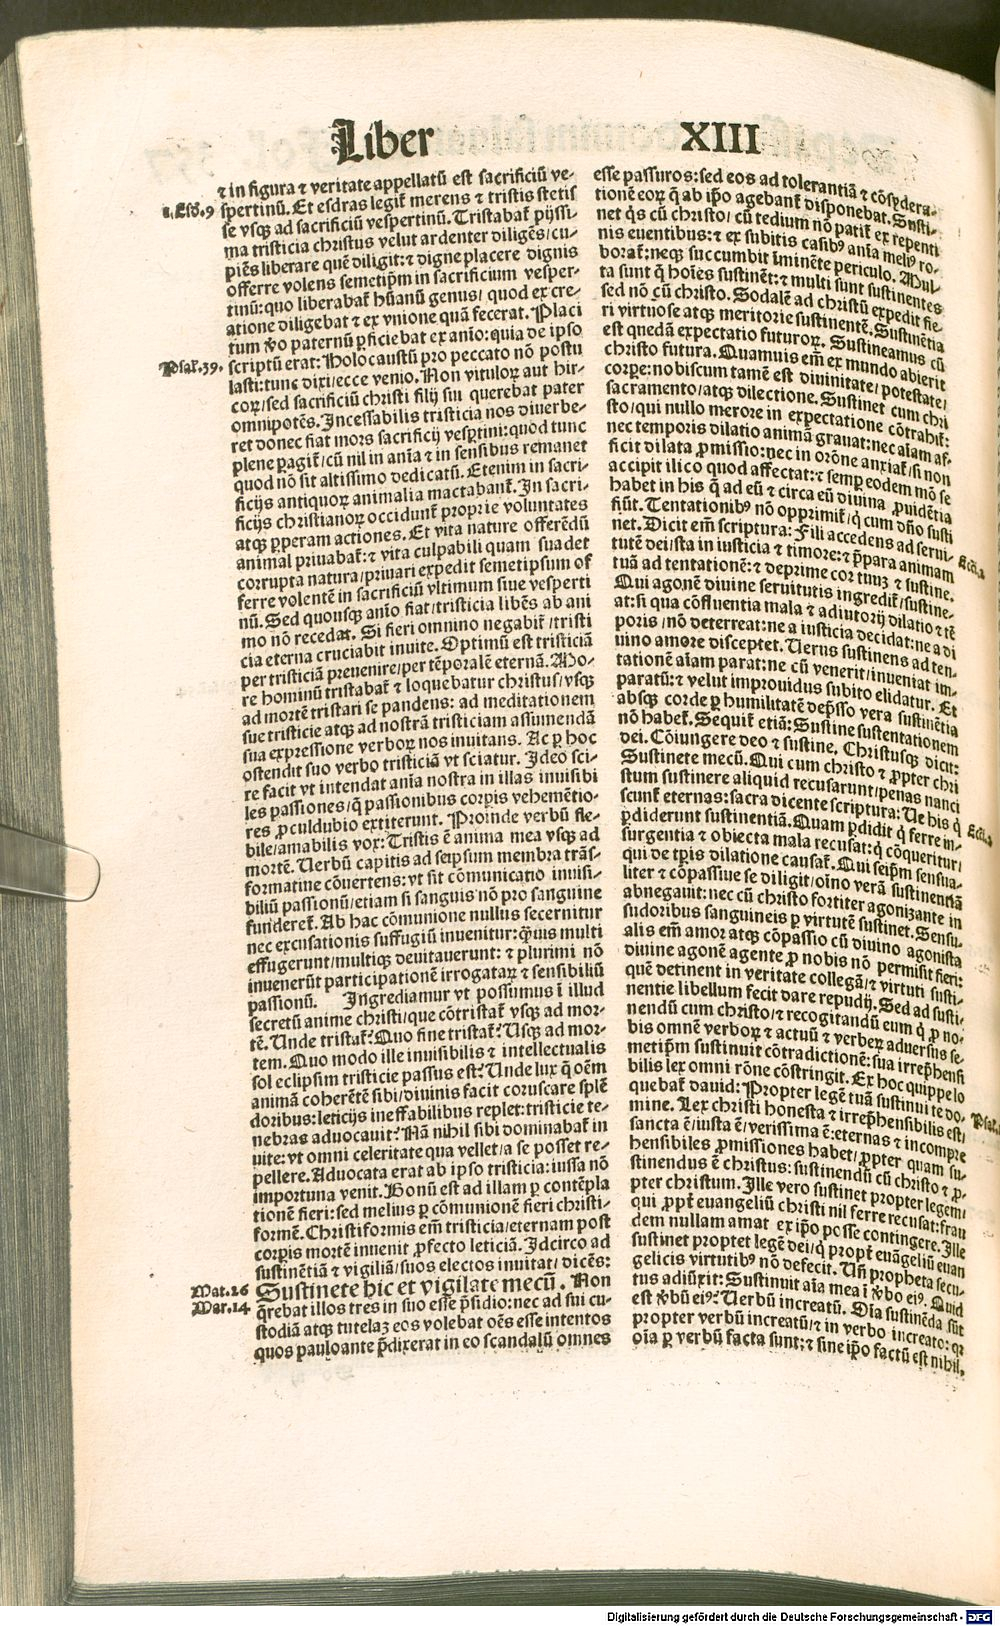 Liber XIII
⁊ in figura ⁊ veritate appellatū est sacrificiū ve-
1.Esd.9 spertinū. Et esdras legiť merens ⁊ tristis stetis
se vsqꝫ ad sacrificiū vespertinū. Tristabať pijssi-
ma tristicia christus velut ardenter diligēs/cu-
piēs liberare quē diligit: ⁊ digne placere dignis
offerre volens semetip̄m in sacrificium vesper-
tinū: quo liberabať hūanū genus/ quod ex cre-
atione diligebat ⁊ ex vnione quā fecerat. Placi
tum v̊o paternū ꝑficiebat ex aīo: quia de ipso
Psal.39. scriptū erat: Holocaustū pro peccato nō postu
lasti: tunc dixi/ecce venio. Non vituloꝝ aut hir-
coꝝ/sed sacrificiū christi filij sui querebat pater
omnipotēs. Incessabilis tristicia nos diuerbe-
ret donec fiat mors sacrificij vesꝑtini: quod tunc
plene ꝑagiť/cū nil in aīa ⁊ in sensibus remanet
quod nō sit altissimo dedicatū. Etenim in sacri-
ficijs antiquoꝝ animalia mactabanť. In sacri-
ficijs christianoꝝ occidunť proprie voluntates
atqꝫ ꝑperam actiones. Et vita nature offerēdū
animal priuabať: ⁊ vita culpabili quam sua det
corrupta natura/priuari expedit semetipsum of
ferre volentē in sacrificiū vltimum siue vesperti
nū. Sed quousqꝫ aīo fiat/tristicia libēs ab ani
mo nō recedat. Si fieri omnino negabiť/tristi
cia eterna cruciabit inuite. Optimū est tristiciā
per tristiciā preuenire/per tēporalē eternā. Mo-
re hominū tristabať ⁊ loquebatur christus/vsqꝫ
ad mortē tristari se pandens: ad meditationem
sue tristicie atqꝫ ad nostrā tristiciam assumendā
sua expressione verboꝝ nos inuitans. Ac ꝑ hoc
ostendit suo verbo tristiciā vt sciatur. Ideo sci-
re facit vt intendat aīa nostra in illas inuisibi
les passiones/q̄ passionibus corpis vehemētio-
res ꝓculdubio extiterunt. Proinde verbū fle-
bile/amabilis vox: Tristis ē anima mea vsqꝫ ad
mortē. Verbū capitis ad seipsum membra trās-
formatiue cōuertens: vt sit cōmunicatio inuisi-
biliū passionū/etiam si sanguis nō pro sanguine
fundereť. Ab hac cōmunione nullus secernitur
nec excusationis suffugiū inuenitur: q̄uis multi
effugerunt/multiqꝫ deuitauerunt: ⁊ plurimi nō
inuenerūt participationē irrogataꝝ ⁊ sensibiliū
passionū. Ingrediamur vt possumus ī illud
secretū anime christi/que cōtristať vsqꝫ ad mor-
tē. Unde tristať? Quo fine tristať? Usqꝫ ad mor-
tem. Quo modo ille inuisibilis ⁊ intellectualis
sol eclipsim tristicie passus est? Unde lux q̄ oēm
animā coherētē sibi/diuinis facit coruscare splē
doribus: leticijs ineffabilibus replet: tristicie te-
nebras aduocauit? Nā nihil sibi dominabať in
uite: vt omni celeritate qua vellet/a se posset re-
pellere. Aduocata erat ab ipso tristicia: iussa nō
importuna venit. Bonū est ad illam ꝑ contēpla
tionē fieri: sed melius ꝑ cōmunionē fieri christi-
formē. Christiformis em̄ tristicia/eternam post
corpis mortē inuenit ꝓfecto leticiā. Idcirco ad
sustinētiā ⁊ vigiliā/suos electos inuitat/dicēs:
Mat.26 Sustinete hic et vigilate mecū. Non
Mar.14 q̄rebat illos tres in suo esse p̄sidio: nec ad sui cu-
stodiā atqꝫ tutelaꝫ eos volebat oēs esse intentos
quos pauloante p̄dixerat in eo scandalū omnes
esse passuros: sed eos ad tolerantiā ⁊ cōsydera-
tionē eoꝝ q̄ ab ip̄o agebanť disponebat. Susti-
net q̇s cū christo/cū tedium nō patiť ex repenti
nis euentibus: ⁊ ex subitis casibꝰ aīa melꝰ ro-
borať: neqꝫ succumbit īminēte periculo. Mul-
ta sunt q̄ hoīes sustinēt: ⁊ multi sunt sustinentes
sed nō cū christo. Sodalē ad christū expedit fie-
ri virtuose atqꝫ meritorie sustinentē. Sustinētia
est quedā expectatio futuroꝝ. Sustineamus cū
christo futura. Quamuis em̄ ex mundo abierit
corpe: nobiscum tamē est diuinitate/potestate/
sacramento/atqꝫ dilectione. Sustinet cum chri
sto/qui nullo merore in expectatione cōtrahiť:
nec temporis dilatio animā grauat: nec aīam af-
ficit dilata ꝓmissio: nec in orōne anxiať/si non
accipit ilico quod affectat: ⁊ semꝑ eodem mō se
habet in his q̄ ad eū ⁊ circa eū diuina ꝓuidētia
fiūt. Tentationibꝰ nō opprimiť/q̇ cum dn̄o susti
net. Dicit em̄ scriptura: Fili accedens ad serui- Ecci.2
tutē dei/sta in iusticia ⁊ timore: ⁊ p̄para animam
tuā ad tentationē: ⁊ deprime cor tuuꝫ ⁊ sustine.
Qui agonē diuine seruitutis ingrediť/sustine-
at: si qua cōfluentia mala ⁊ adiutorij dilatio ⁊ tē
poris/nō deterreat: ne a iusticia decidat: ne a di
uino amore disceptet. Uerus sustinens ad ten-
tationē aīam parat: ne cū venerit/inueniat im-
paratū: ⁊ velut improuidus subito elidatur. Et
absqꝫ corde ꝑ humilitatē dep̄sso vera sustinētia
nō habeť. Sequiť etiā: Sustine sustentationem
dei. Cōiungere deo ⁊ sustine. Christusqꝫ dicit:
Sustinete mecū. Qui cum christo ⁊ ꝓpter chri
stum sustinere aliquid recusarunt/penas nanci
scunť eternas: sacra dicente scriptura: Ue his q̇ Ecci.2
ꝑdiderunt sustinentiā. Quam ꝑdidit q̇ ferre in-
surgentia ⁊ obiecta mala recusat: q̇ cōqueritur/
qui de tp̄is dilatione causať. Qui seip̄m sensua-
liter ⁊ cōpassiue se diligit/oīno verā sustinentiā
abnegauit: nec cū christo fortiter agonizante in
sudoribus sanguineis ꝑ virtutē sustinet. Sensu-
alis em̄ amor atqꝫ cōpassio cū diuino agonista
diuine agonē agente ꝓ nobis nō permisit fieri:
quē detinent in veritate collegā/⁊ virtuti susti-
nentie libellum fecit dare repudij. Sed ad susti-
nendū cum christo/⁊ recogitandū eum q̇ ꝓ no-
bis omnē verboꝝ ⁊ actuū ⁊ verbeꝝ aduersus se-
metip̄m sustinuit cōtradictionē: sua irrep̄hensi
bilis lex omni rōne cōstringit. Ex hoc quippe lo
quebať dauid: Propter legē tuā sustinui te do- Psal.
mine. Lex christi honesta ⁊ irrep̄hensibilis est/
sancta ē/iusta ē/verissima ē: eternas ⁊ incompre
hensibiles ꝓmissiones habet/ꝓpter quam su-
stinendus ē christus: sustinendū cū christo ⁊ ꝓ-
pter christum. Ille vero sustinet propter legem/
qui ꝓpť euangeliū christi nil ferre recusat: frau
dem nullam amat ex ip̄o posse contingere. Ille
sustinet proptet legē dei/q̇ ꝓpť euāgeliū euan
gelicis virtutibꝰ nō defecit. Uñ propheta secu-
tus adiūxit: Sustinuit aīa mea ī v̊bo eiꝰ. Quid
est v̊bū eiꝰ? Uerbū increatū. Oīa sustinēda sūt
propter verbū increatū/⁊ in verbo increato: qꝛ
oīa ꝑ verbū facta sunt: ⁊ sine ip̄o factū est nihil.
Digitalisierung gefördert durch die Deutsche Forschungsgemeinschaft - DFG